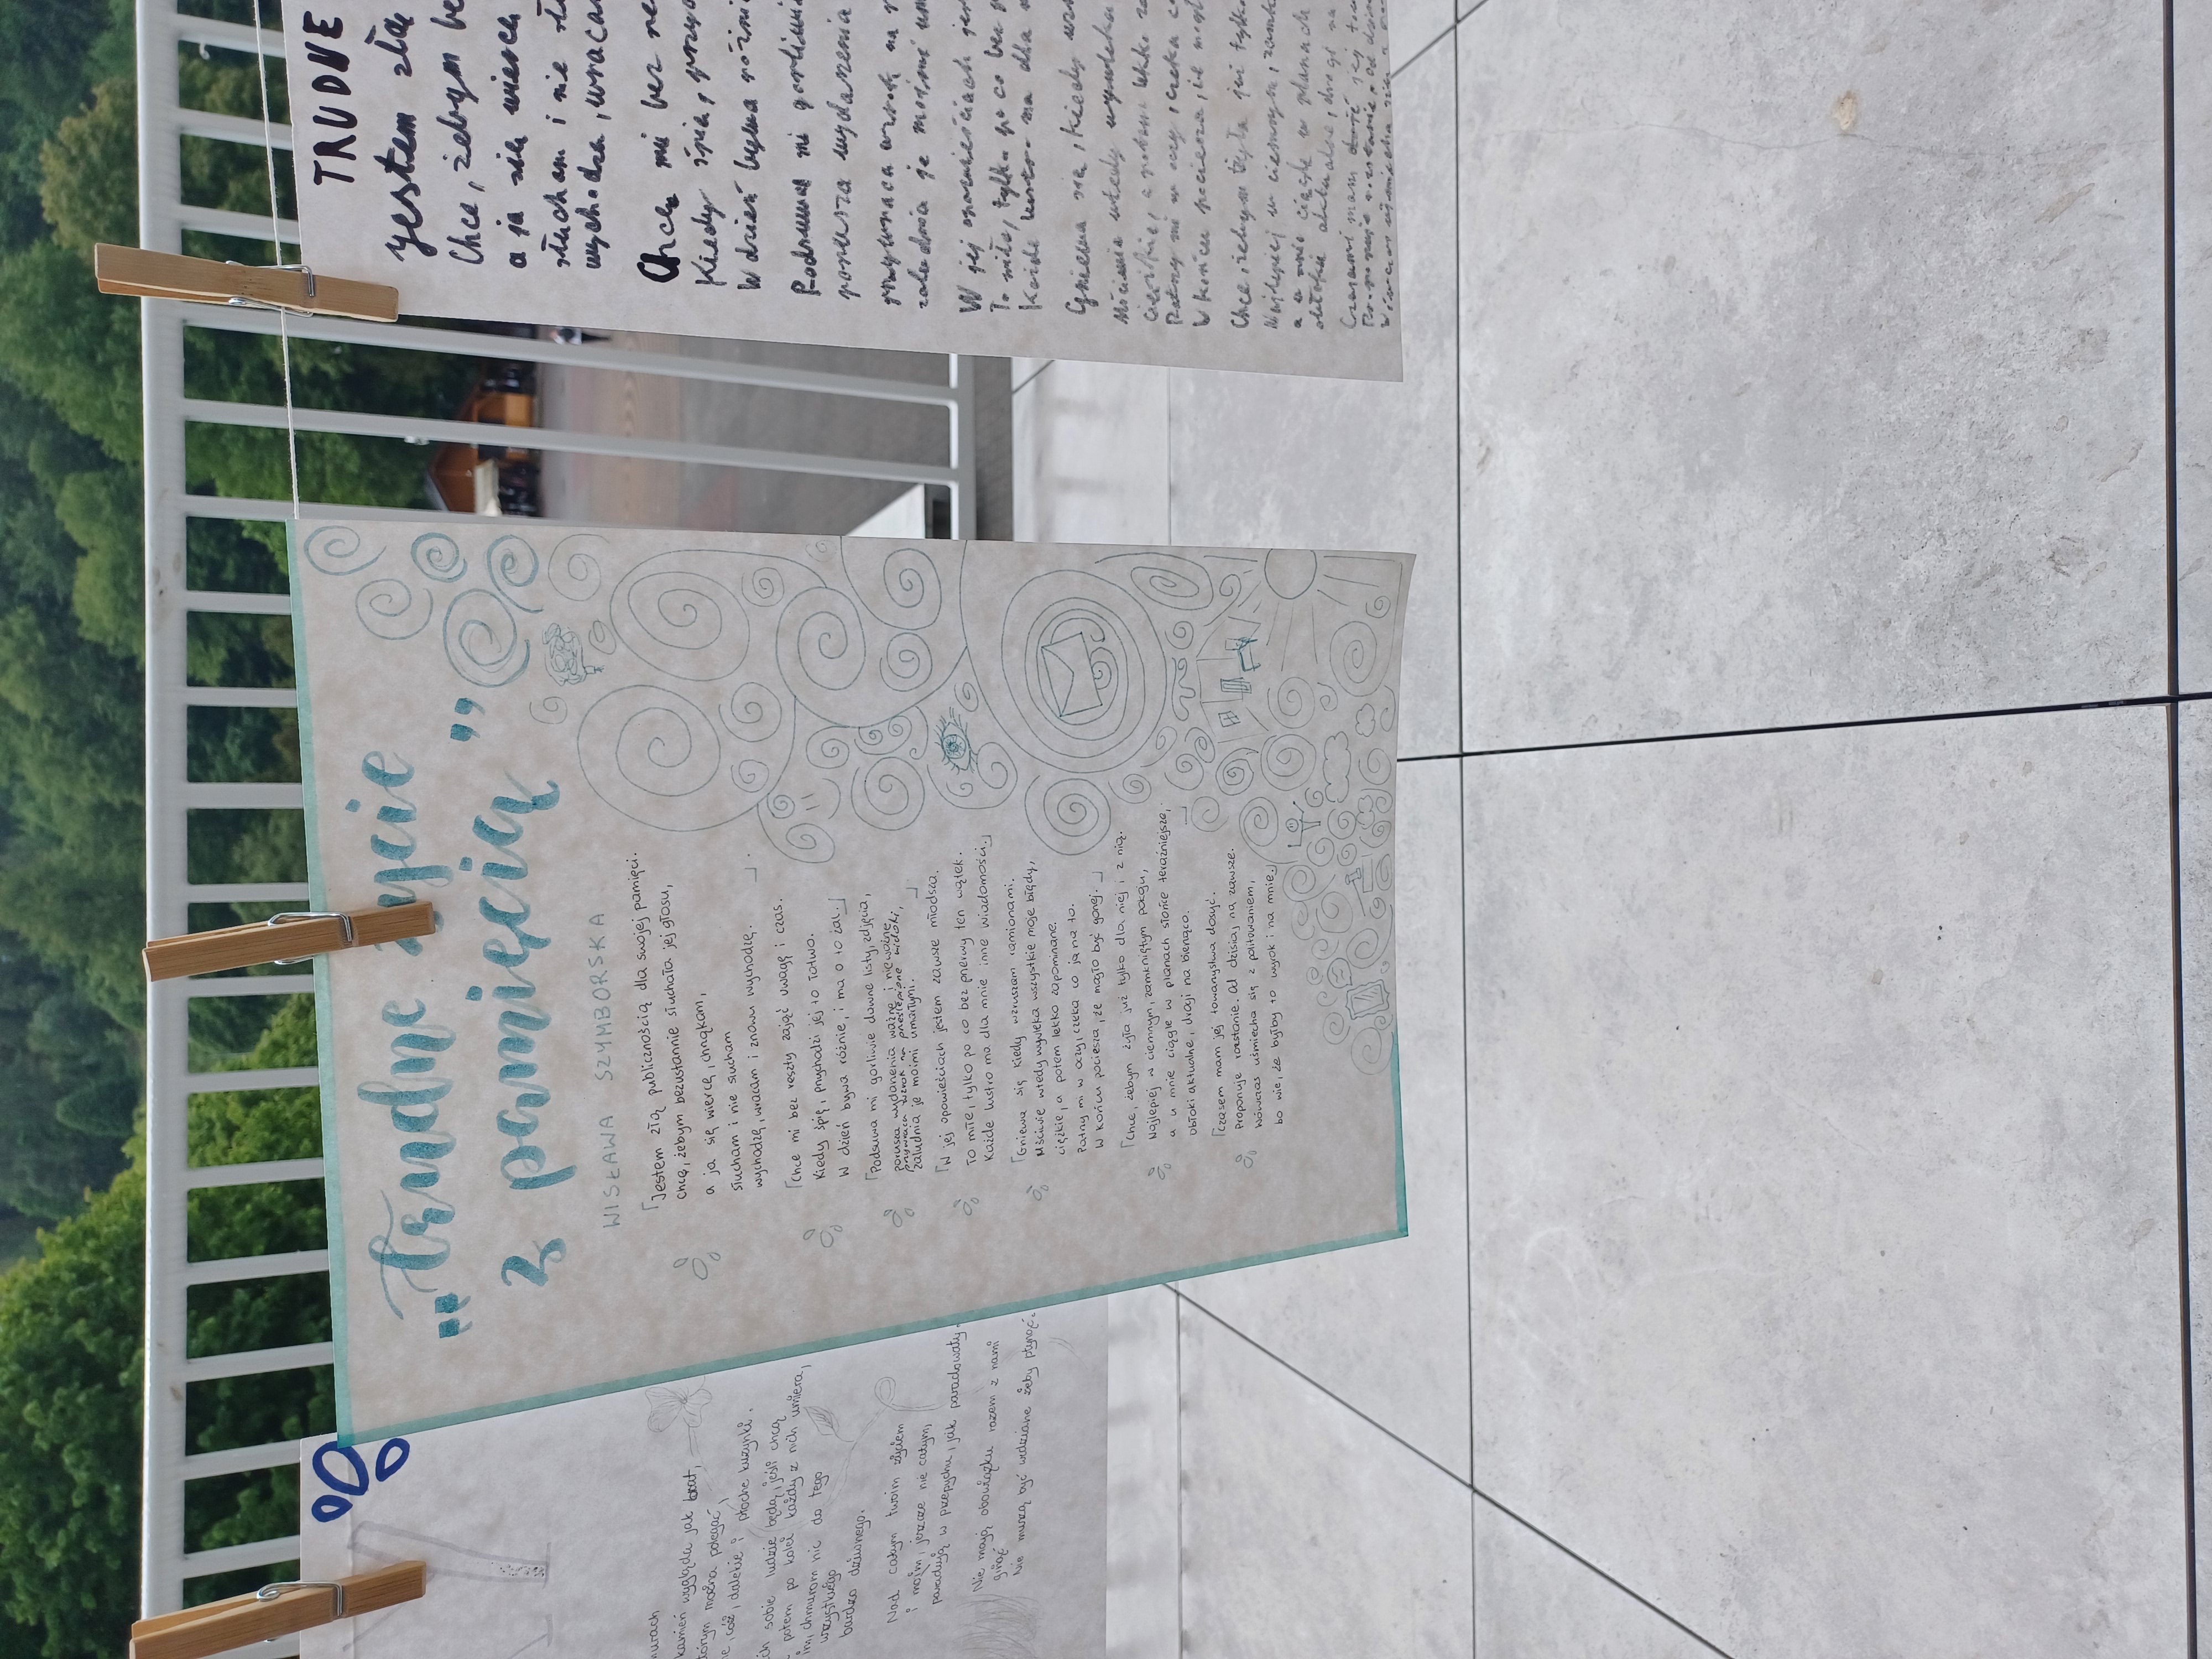 murach
kamień wygląda jak brat,
tórym można polegać,
e, cóż, dalekie i płoche kuzynki.
ch sobie ludzie będą, jeśli chcą
potem po kolei każdy z nich umiera,
im, chmurom nic do tego
wszystkiego
bardzo dziwnego.
Nad całym twoim życiem
i moim, jeszcze nie całym,
paradują w przepychu, jak paradowały.
Nie mają obowiązku razem z nami
ginąć
Nie muszą być widziane żeby płynąć.
„Trudne życie
z pamięcią”
WISŁAWA SZYMBORSKA
Jestem złą publicznością dla swojej pamięci.
chce, żebym bezustannie słuchała jej głosu,
a ja się wiercę, chrząkam,
słucham i nie słucham
wychodzę, wracam i znowu wychodzę.
Chce mi bez reszty zająć uwagę i czas.
Kiedy śpię, przychodzi jej to łatwo.
W dzień bywa różnie, i ma o to żal.
Podsuwa mi gorliwie dawne listy, zdjęcia,
porusza wydarzenia ważne i nieważne,
przywraca wzrok na prześlepione widoki,
zaludnia je moimi umarłymi.
W jej opowieściach jestem zawsze młodsza.
To miłe, tylko po co bez przerwy ten wątek.
Każde lustro ma dla mnie inne wiadomości.
Gniewa się kiedy wzruszam ramionami.
Mściwie wtedy wywleka wszystkie moje błędy,
ciężkie, a potem lekko zapomniane.
Patrzy mi w oczy, czeka co ja na to.
W końcu pociesza, że mogło być gorzej.
Chce, żebym żyła już tylko dla niej i z nią.
Najlepiej w ciemnym, zamkniętym pokoju,
a u mnie ciągle w planach słońce teraźniejsze,
obłoki aktualne, drogi na bieżąco.
Czasem mam jej towarzystwa dosyć.
Proponuję rozstanie. Od dzisiaj na zawsze.
Wówczas uśmiecha się z politowaniem,
bo wie, że byłby to wyrok i na mnie.
TRUDNE
Jestem złą
Chce, żebym be
a ja się wiercę
słucham i nie sł
wychodzę, wracam
Chce mi bez re
Kiedy śpię, przyc
W dzień bywa różni
Podsuwa mi gorliwi
porusza wydarzenia
przywraca wzrok na
zaludnia je moimi um
W jej opowieściach jes
To miłe, tylko po co bez
Każde lustro ma dla
Gniewa się, kiedy wzr
Mściwie wtedy wywleka
ciężkie, a potem lekko
Patrzy mi w oczy, czeka
W końcu pociesza, że mogł
Chce, żebym żyła już tylko
Najlepiej w ciemnym, zamk
a u mnie ciągle w planach
obłoki aktualne, drogi na
Czasami mam dosyć jej tow
Proponuję rozstanie. Od dzisi
Wówczas uśmiecha się z